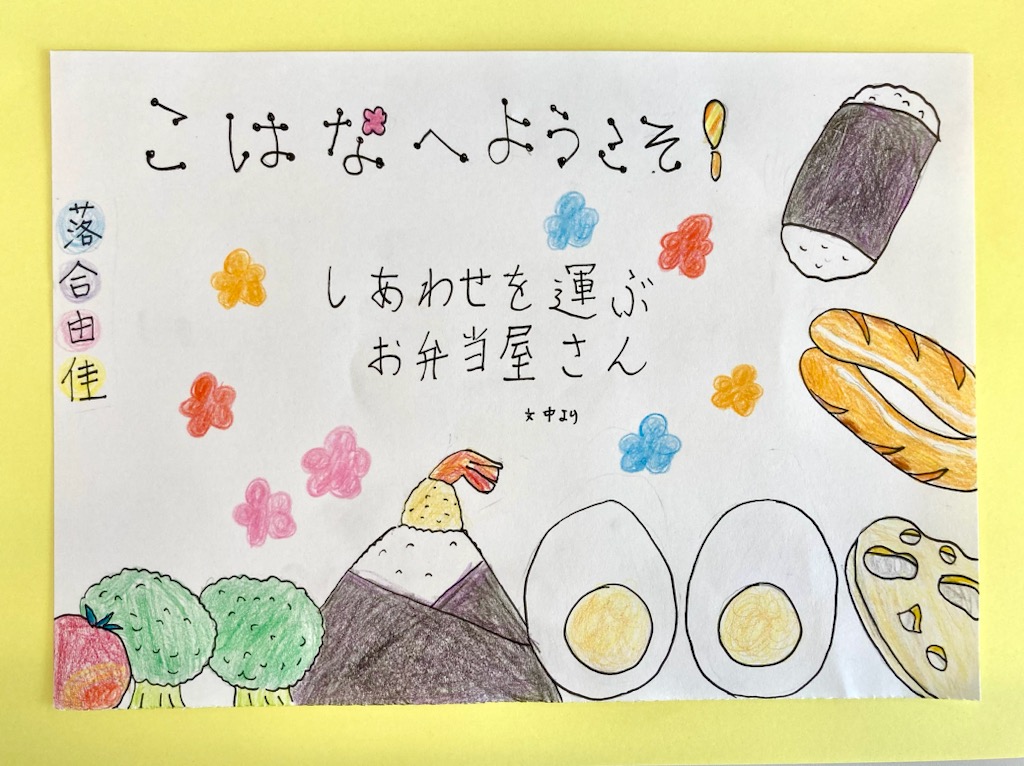 こはなへようこそ!
落合由佳
しあわせを運ぶ
お弁当屋さん
文中より